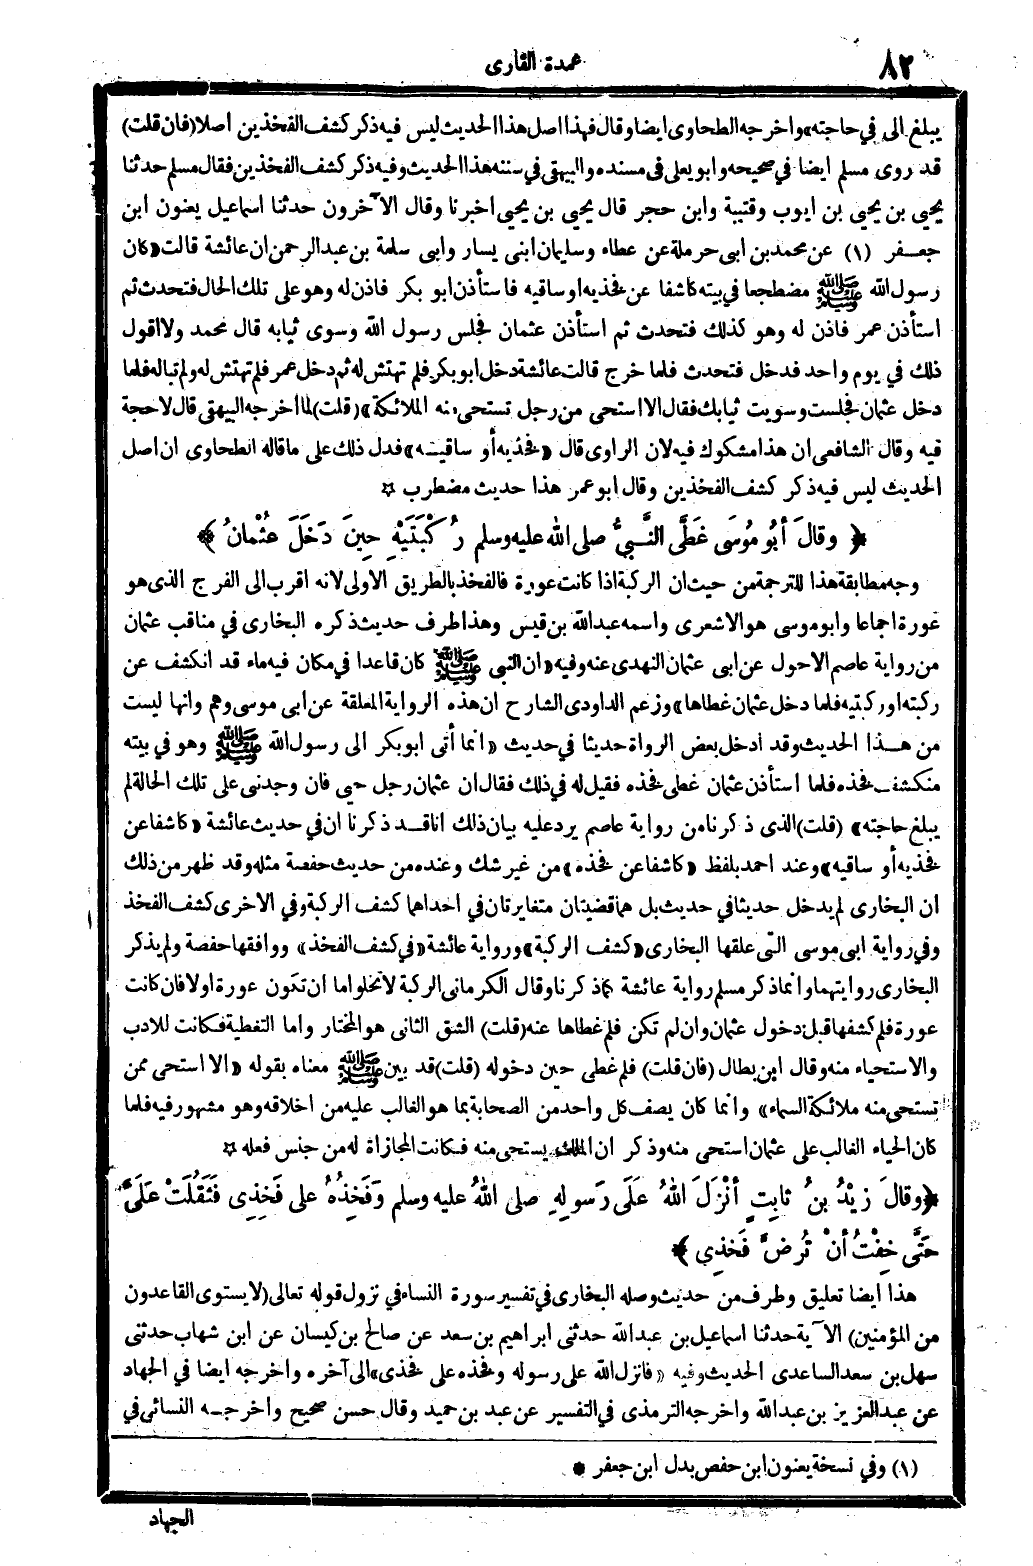 ٨٢
عمدة القارى
يبلغ الى في حاجته» واخرجه الطحاوى ايضا وقال فهذا اصل هذا الحديث ليس فيه ذكر كشف الفخذين اصلا (فان قلت)
قد روى مسلم ايضا في صحيحه وابو يعلى فى مسنده والبيهقى في سننه هذا الحديث وفيه ذكر كشف الفخذين فقال مسلم حدثنا
يحيى بن يحيى بن ايوب وقتيبة وابن حجر قال يحيى بن يحيى اخبرنا وقال الآخرون حدثنا اسماعيل يعنون ابن
جعفر (١) عن محمد بن ابى حرملة عن عطاء وسليمان ابنى يسار وابى سلمة بن عبد الرحمن ان عائشة قالت «كان
رسول الله ﷺ مضطجعا في بيته كاشفا عن فخذيه او ساقيه فاستأذن ابو بكر فاذن له وهو على تلك الحال فتحدث ثم
استأذن عمر فاذن له وهو كذلك فتحدث ثم استأذن عثمان فجلس رسول الله وسوى ثيابه قال محمد ولا اقول
ذلك في يوم واحد فدخل فتحدث فلما خرج قالت عائشة دخل ابو بكر فلم تهتش له ثم دخل عمر فلم تهتش له ولم تباله فلما
دخل عثمان فجلست وسويت ثيابك فقال الا استحى من رجل تستحى منه الملائكة» (قلت) لما اخرجه البيهقى قال لا حجة
فيه وقال الشافعى ان هذا مشكوك فيه لان الراوى قال «فخذيه أو ساقيه» فدل ذلك على ما قاله الطحاوى ان اصل
الحديث ليس فيه ذكر كشف الفخذين وقال ابو عمر هذا حديث مضطرب ☆
﴿ وقالَ أبُو مُوسَى غَطَّى النَّبيُّ صلى الله عليه وسلم رُكْبَتَيْهِ حِينَ دَخَلَ عُثْمانُ ﴾
وجه مطابقة هذا للترجمة من حيث ان الركبة اذا كانت عورة فالفخذ بالطريق الاولى لانه اقرب الى الفرج الذى هو
عورة اجماعا وابو موسى هو الاشعرى واسمه عبد الله بن قيس وهذا طرف حديث ذكره البخارى في مناقب عثمان
من رواية عاصم الاحول عن ابى عثمان النهدى عنه وفيه «ان النبى ﷺ كان قاعدا في مكان فيه ماء قد انكشف عن
ركبته او ركبتيه فلما دخل عثمان غطاها» وزعم الداودى الشارح ان هذه الرواية المعلقة عن ابى موسى وهم وانها ليست
من هذا الحديث وقد ادخل بعض الرواة حديثا في حديث «انما أتى ابو بكر الى رسول الله ﷺ وهو في بيته
منكشف فخذه فلما استأذن عثمان غطى فخذه فقيل له في ذلك فقال ان عثمان رجل حيى فان وجدنى على تلك الحالة لم
يبلغ حاجته» (قلت) الذى ذكرنا من رواية عاصم يرد عليه بيان ذلك انا قد ذكرنا ان في حديث عائشة «كاشفا عن
فخذيه أو ساقيه» وعند احمد بلفظ «كاشفا عن فخذه» من غير شك وعنده من حديث حفصة مثله وقد ظهر من ذلك
ان البخارى لم يدخل حديثا في حديث بل هما قضيتان متغايرتان في احداهما كشف الركبة وفي الاخرى كشف الفخذ
وفي رواية ابى موسى التى علقها البخارى «كشف الركبة» ورواية عائشة «في كشف الفخذ» ووافقها حفصة ولم يذكر
البخارى روايتهما وانما ذكر مسلم رواية عائشة كما ذكرنا وقال الكرمانى الركبة لا تخلو اما ان تكون عورة اولا فان كانت
عورة فلم كشفها قبل دخول عثمان وان لم تكن فلم غطاها عنه (قلت) الشق الثانى هو المختار واما التغطية فكانت للادب
والاستحياء منه وقال ابن بطال (فان قلت) فلم غطى حين دخوله (قلت) قد بين ﷺ معناه بقوله «الا استحى ممن
تستحى منه ملائكة السماء» وانما كان يصف كل واحد من الصحابة بما هو الغالب عليه من اخلاقه وهو مشهور فيه فلما
كان الحياء الغالب على عثمان استحى منه وذكر ان الملك يستحى منه فكانت المجازاة له من جنس فعله ☆
﴿ وقالَ زَيْدُ بنُ ثابِتٍ أنْزَلَ اللهُ عَلَى رَسولِهِ صلى اللهُ عليه وسلم وَفَخِذُهُ على فَخِذِى فَثَقُلَتْ عَلَىَّ
حَتَّى خِفْتُ أنْ تُرَضَّ فَخذِى ﴾
هذا ايضا تعليق وطرف من حديث وصله البخارى في تفسير سورة النساء في نزول قوله تعالى (لا يستوى القاعدون
من المؤمنين) الآية حدثنا اسماعيل بن عبد الله حدثنى ابراهيم بن سعد عن صالح بن كيسان عن ابن شهاب حدثنى
سهل بن سعد الساعدى الحديث وفيه «فانزل الله على رسوله وفخذه على فخذى» الى آخره واخرجه ايضا في الجهاد
عن عبد العزيز بن عبد الله واخرجه الترمذى في التفسير عن عبد بن حميد وقال حسن صحيح واخرجه النسائى في
(١) وفي نسخة يعنون ابن حفص بدل ابن جعفر *
الجهاد